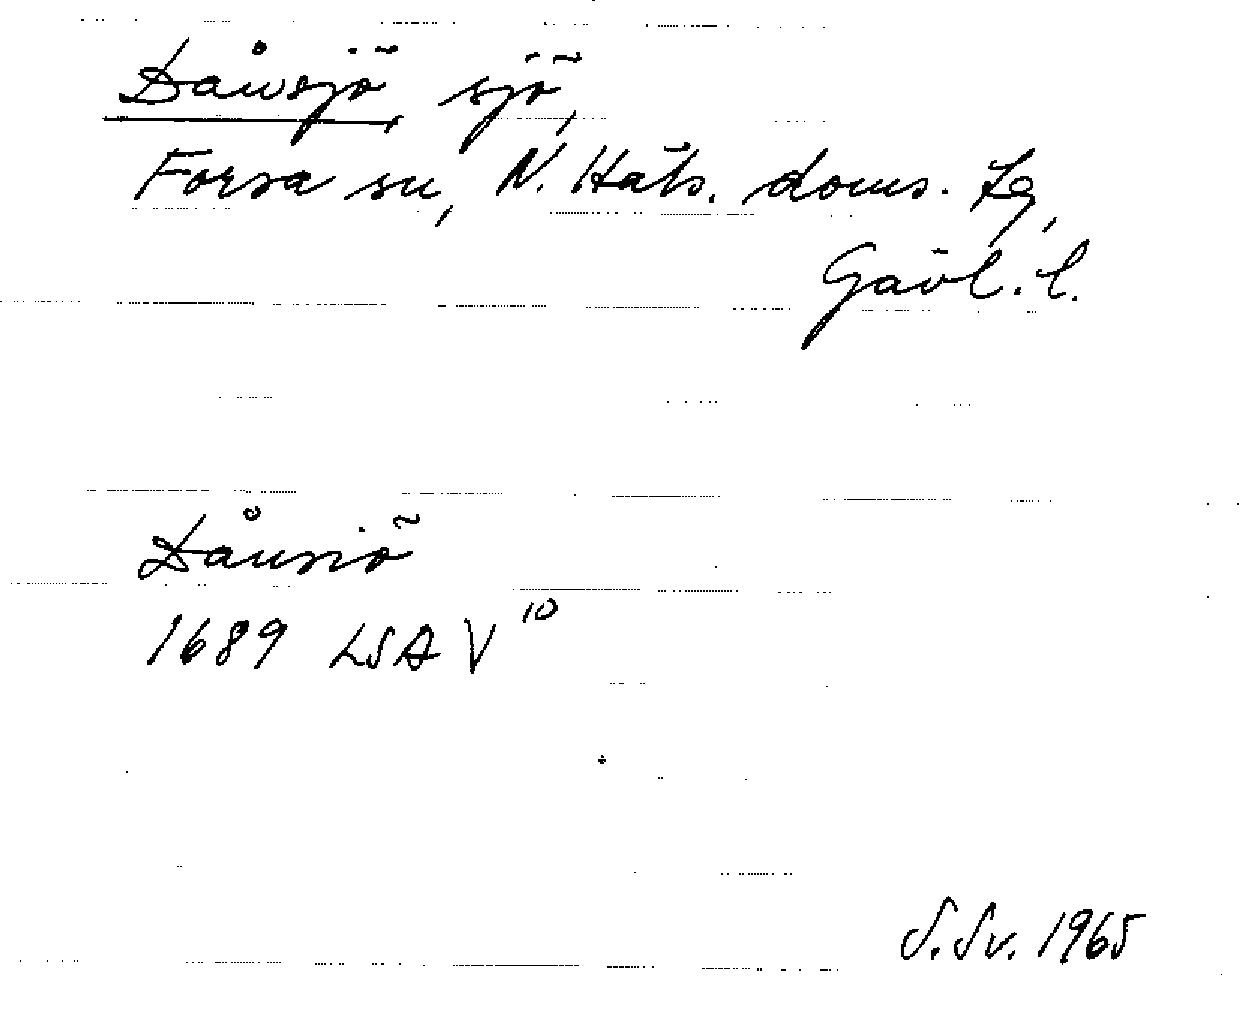 Dåusjö, sjö,
Forsa sn, N. Häls. doms. Lg,
Gävl. l.
Dåusiö
1689 LSA V 10
S. Sv. 1965